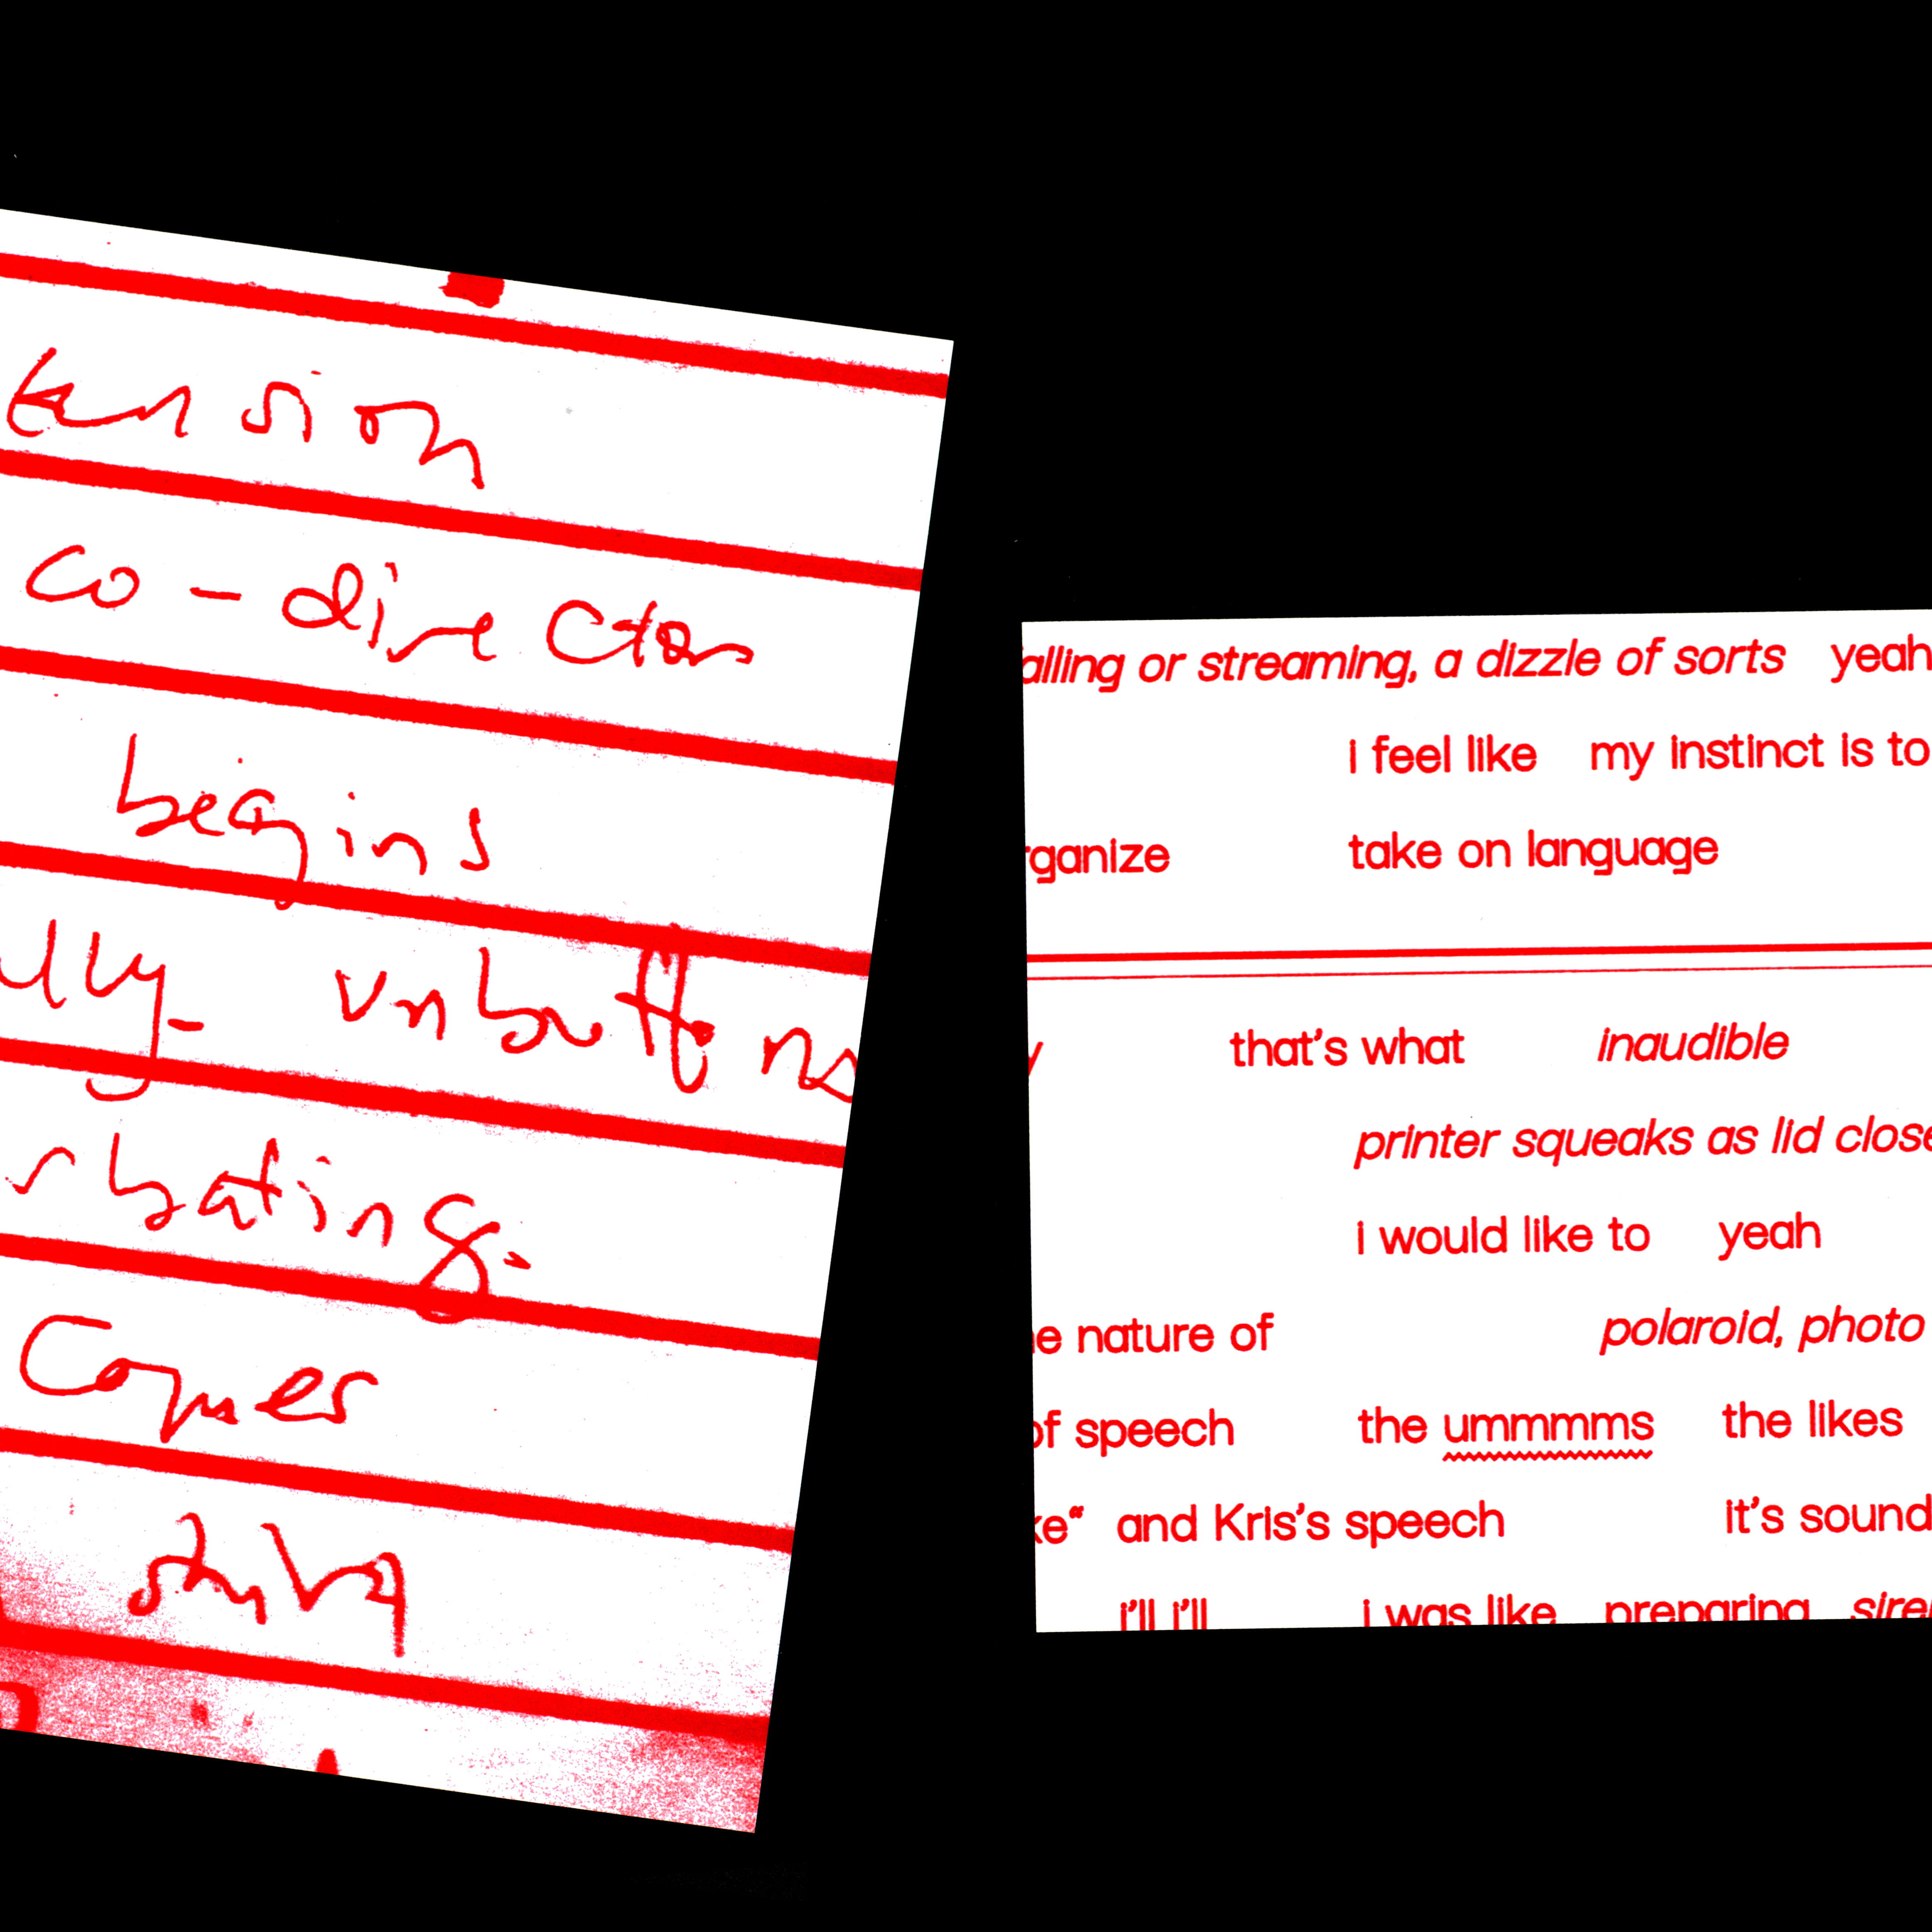 tension
co-director
begins
ully- unbuttons
rbating-
Comes
alling or streaming, a dizzle of sorts yeah
i feel like my instinct is to
rganize take on language
y that's what inaudible
printer squeaks as lid close
i would like to yeah
e nature of polaroid, photo
of speech the ummmms the likes
ke“ and Kris's speech it's sound
i'll i'll i was like preparing siren